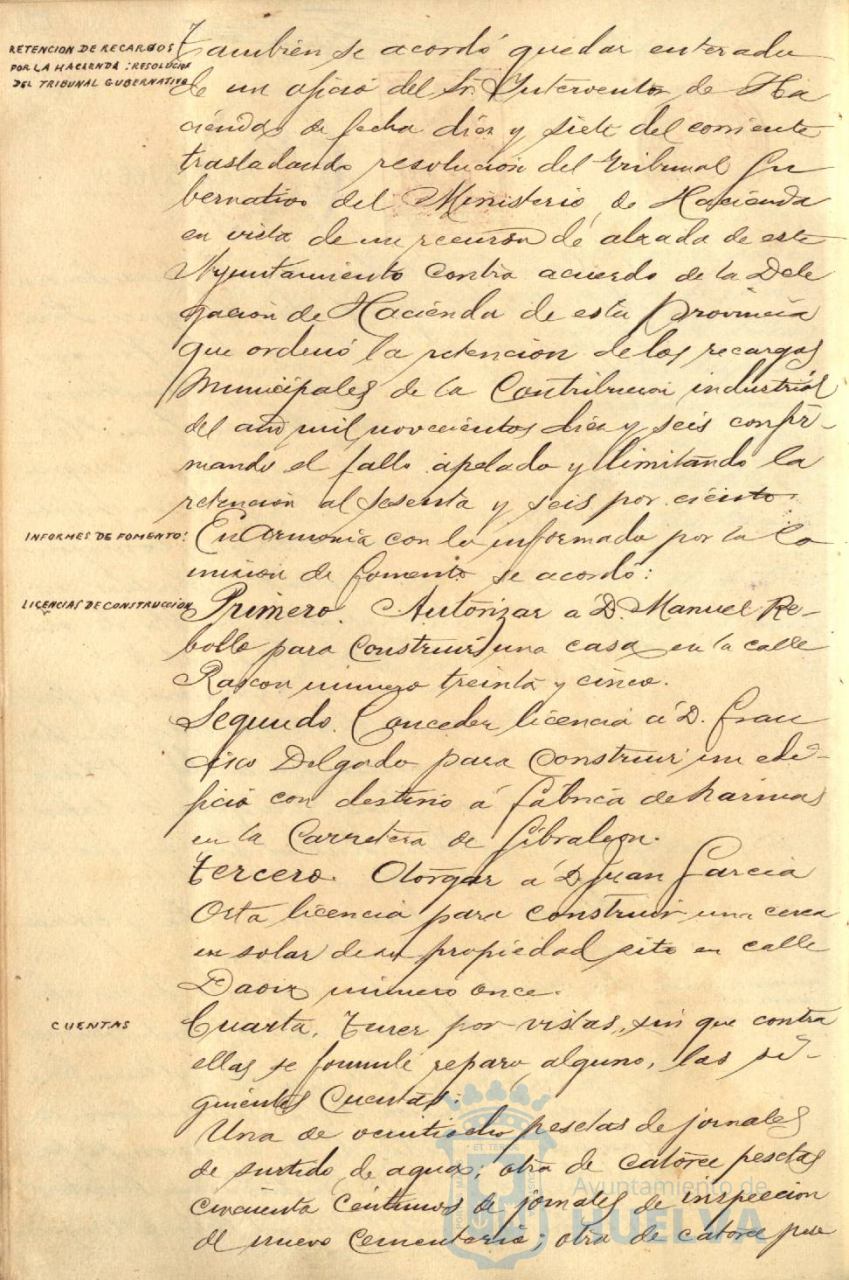 RETENCION DE RECARGOS
POR LA HACIENDA: RESOLUCION
DEL TRIBUNAL GUBERNATIVO
Tambien se acordó quedar enterado
de un oficio del Sr. Interventor de Ha
cienda de fecha diez y siete del corriente
trasladando resolucion del Tribunal Gu
bernativo del Ministerio de Hacienda
en vista de un recurso de alzada de este
Ayuntamiento contra acuerdo de la Dele
gacion de Hacienda de esta provincia
que ordenó la retencion de los recargos
Municipales de la Contribucion industrial
del año mil novecientos diez y seis confir-
mando el fallo apelado y limitando la
retencion al sesenta y seis por ciento.
INFORMES DE FOMENTO:
En Armonia con lo informado por la Co
mision de fomento se acordó:
LICENCIAS DE CONSTRUCCION
Primero. Autorizar a D. Manuel Re-
bollo para construir una casa en la calle
Rascon numero treinta y cinco.
Segundo. Conceder licencia á D. Fran
cisco Delgado para construir un edi-
ficio con destino á fábrica de harinas
en la Carretera de Gibraleon.
Tercero. Otorgar á D. Juan Garcia
Orta licencia para construir una cerca
en solar de su propiedad sito en calle
Daoiz numero once.
CUENTAS
Cuarta. Tener por vistas, sin que contra
ellas se formule reparo alguno, las si-
guientes Cuentas:
Una de veintiocho pesetas de jornales
de surtido de agua; otra de catorce pesetas
cincuenta centimos de jornales de inspeccion
del nuevo cementerio; otra de catorce pese
Ayuntamiento de
HUELVA